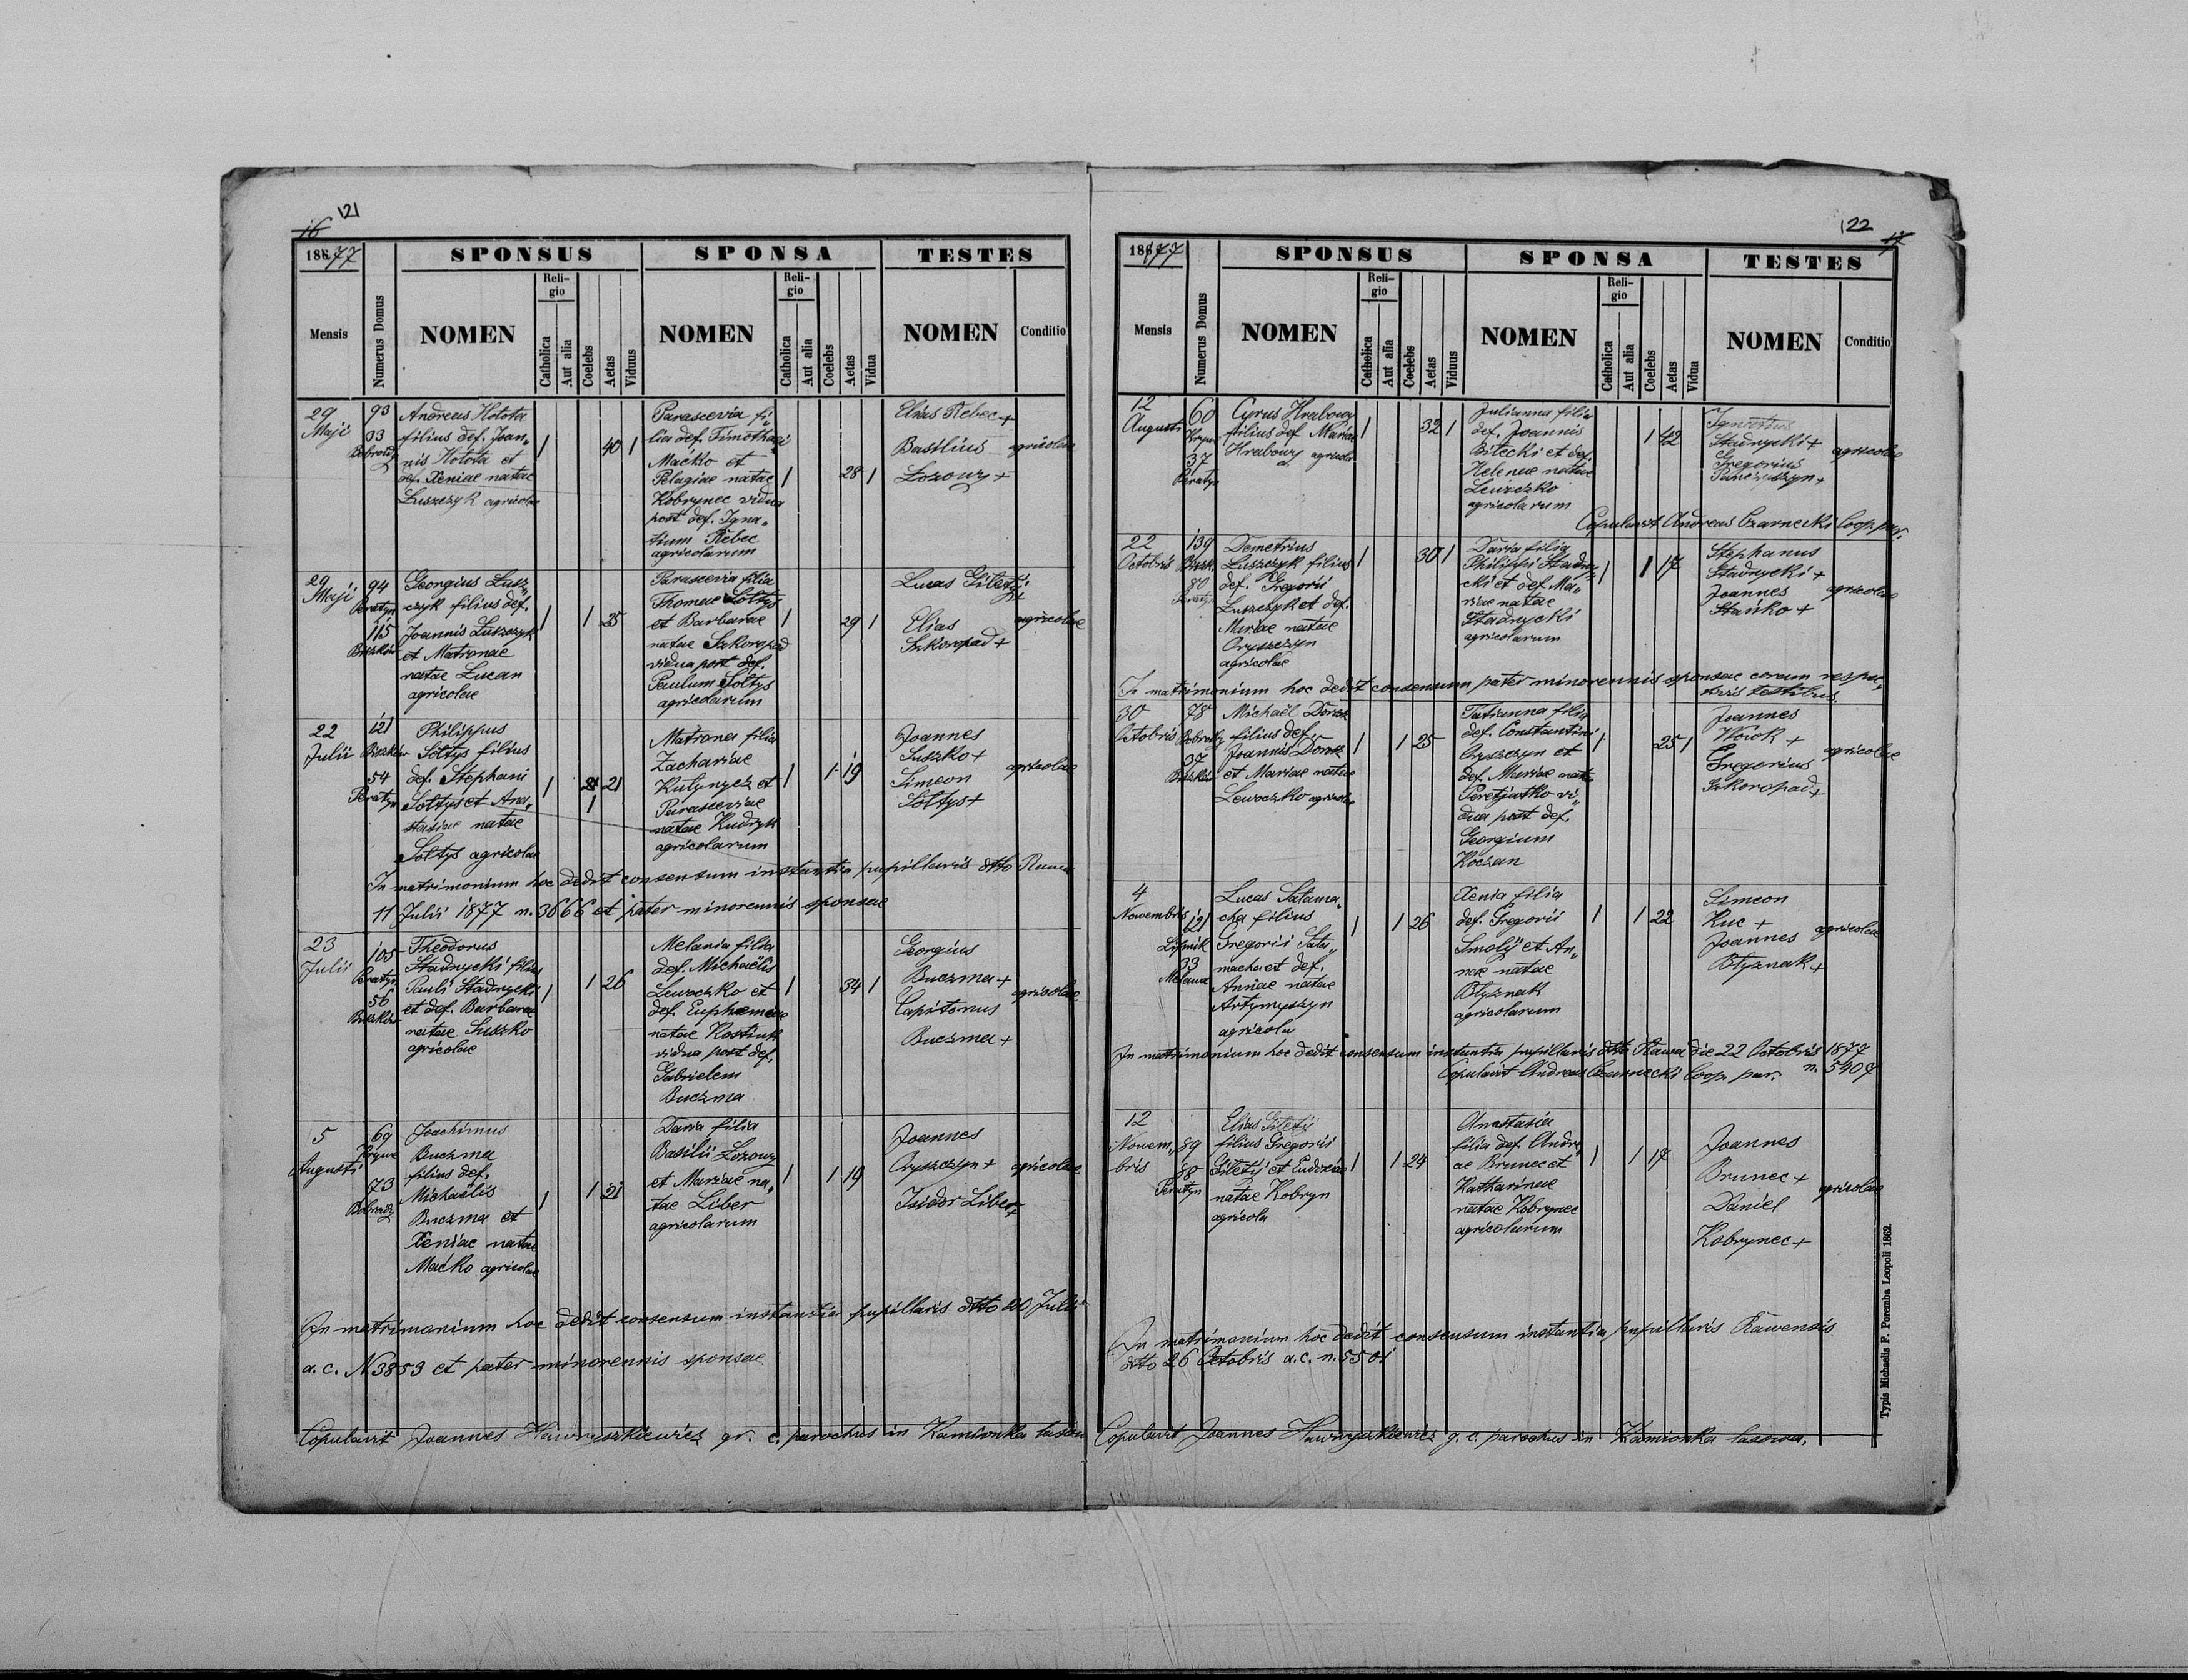 121
16
1877
SPONSUS
SPONSA
TESTES
Mensis
Numerus Domus
NOMEN
Religio
Catholica
Aut alia
Coelebs
Aetas
Viduus
NOMEN
Religio
Catholica
Aut alia
Coelebs
Aetas
Vidua
NOMEN
Conditio
29
Maji
93
33
Andreas Hotota
filius def. Joan„
nis Hotota et
def. Xeniae natae
Łuszczyk agricolae
1
40 1
Parascevia fi„
lia def. Timothaei
Maćko et
Pelagiae natae
Kobrynec vidua
post def. Igna„
tium Rebec
agricolarum
1
28 1
Elias Rebec +
Basilius
Łozowy +
agricolae
29
Maji
94
Peratyn
115
Georgius Łusz„
czyk filius def.
Joannis Łuszczyk
et Matronae
natae Lucan
agricolae
1
1 35
Parascevia filia
Thomae Sołtys
et Barbarae
natae Szkoropad
vidua post def.
Paulum Sołtys
agricolarum
1
29 1
Lucas Giletij
+
Elias
Szkoropad +
agricolae
22
Julii
121
54
Peratyn
Philippus
Sołtys filius
def. Stephani
Sołtys et Ana„
stasiae natae
Sołtys agricolae
1
21
1
Matrona filia
Zachariae
Kulynycz et
Parasceviae
natae Kudryk
agricolarum
1
1 19
Joannes
Suszko +
Simeon
Sołtys +
agricolae
In matrimonium hoc dedit consensum instantia pupillaris dtto Rawa
11 Julii 1877 n. 3666 et pater minorennis sponsae
23
Julii
105
Peratyn
56
Theodorus
Stadnycki filius
Pauli Stadnycki
et def. Barbarae
natae Suszko
agricolae
1
1 26
Melania filia
def. Michaëlis
Lewoczko et
def. Euphemiae
natae Kostiuk
vidua post def.
Gabrielem
Buczma
1
34 1
Georgius
Buczma +
Capitonus
Buczma +
agricolae
5
Augusti
69
73
Joachimus
Buczma
filius def.
Michaëlis
Buczma et
Xeniae natae
Maćko agricolae
1
1 21
Daria filia
Basilii Łozowy
et Mariae na„
tae Liber
agricolarum
1
1 19
Joannes
Oryszczyn +
Isidor Liber
+
agricolae
In matrimonium hoc dedit consensum instantia pupillaris dtto 20 Julii
a. c. N. 3853 et pater minorennis sponsae
Copulavit Joannes Hawryszkiewicz gr. c. parochus in Kamionka lasowa
122
17
1877
SPONSUS
SPONSA
TESTES
Mensis
Numerus Domus
NOMEN
Religio
Catholica
Aut alia
Coelebs
Aetas
Viduus
NOMEN
Religio
Catholica
Aut alia
Coelebs
Aetas
Vidua
NOMEN
Conditio
12
Augusti
60
37
Peratyn
Cyrus Hrabowy
filius def Mariae
Hrabowy agricola
1
32 1
Julianna filia
def. Joannis
Bilecki et def.
Helenae natae
Lewczko
agricolarum
1 42
Ignatius
Stadnycki +
Gregorius
agricolae
Copulavit Andreas Czarnecki Coop. par.
22
Octobris
139
80
Peratyn
Demetrius
Łuszczyk filius
def. Gregorii
Łuszczyk et def.
Mariae natae
Oryszczyn
agricolae
1
30 1
Daria filia
Philippi Stadny„
cki et def. Ma„
riae natae
Stadnycki
agricolarum
1
1 17
Stephanus
Stadnycki +
Joannes
Stańko +
agricolae
In matrimonium hoc dedit consensum pater minorennis sponsae coram respec„
tivis testibus.
30
Octobris
78
37
Michaël Dorok
filius def.
Joannis Dorok
et Mariae natae
Lewoczko agricolae
1
1 25
Tatianna filia
def. Constantini
Oryszczyn et
def. Mariae natae
Peretjatko vi„
dua post def.
Georgium
Koczan
1
25 1
Joannes
+
Gregorius
Szkoropad +
agricolae
4
Novembris
121
Lipnik
33
Lucas Satama„
cha filius
Gregorii Sata„
macha et def.
Anniae natae
Artymyszyn
agricola
1
1 26
Xenia filia
def. Gregorii
Smolij et An„
nae natae
Błyznak
agricolarum
1
1 22
Simeon
Kuc +
Joannes
Błyznak +
agricolae
In matrimonium hoc dedit consensum instantia pupillaris dtto Rawa die 22 Octobris 1877
n. 5407
Copulavit Andreas Czarnecki Coop. par.
12
Novem„
bris
89
88
Peratyn
Elias Giletij
filius Gregorii
Giletij et Eudociae
natae Kobryn
agricola
1
1 24
Anastasia
filia def. Andre„
ae Brunec et
Katharinae
natae Kobrynec
agricolarum
1
1 17
Joannes
Brunec +
Daniel
Kobrynec +
agricolae
In matrimonium hoc dedit consensum instantia pupillaris Rawensis
dtto 26 Octobris a. c. n. 5501
Copulavit Joannes Hawryszkiewicz g. c. parochus in Kamionka lasowa.
Typis Michaelis F. Poremba Leopoli 1869.